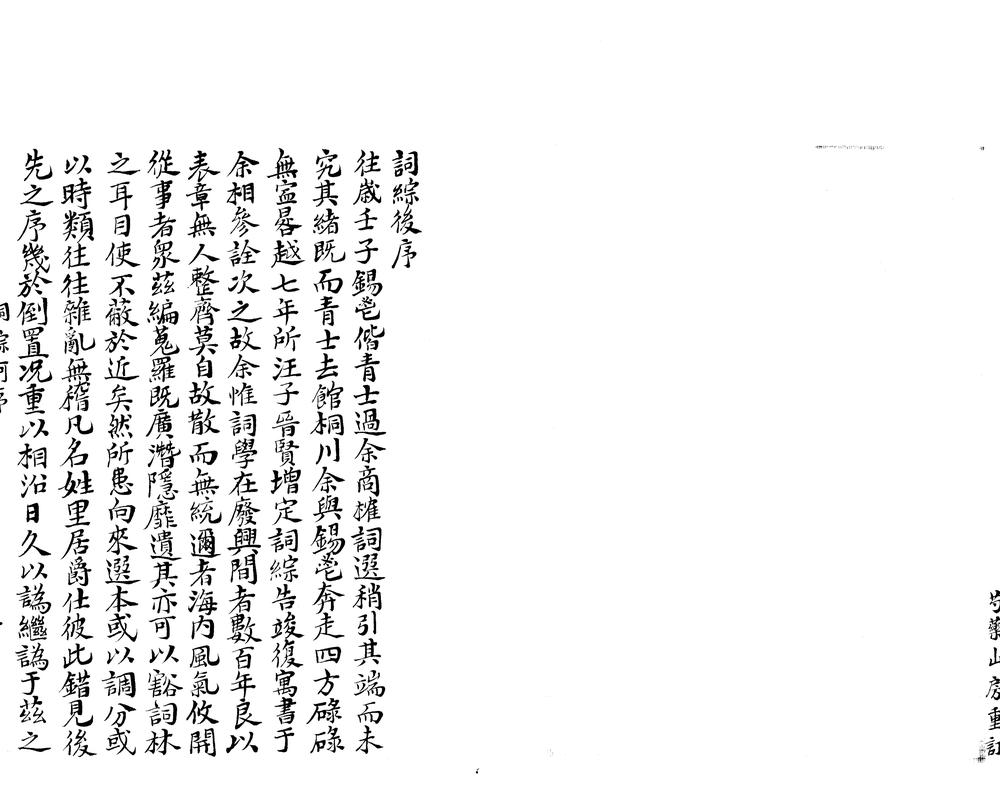 藥山房重訂
詞綜後序
往歲壬子錫鬯偕青士過余商搉詞選稍引其端而未
究其緒既而青士去館桐川余與錫鬯奔走四方碌碌
無寍晷越七年所汪子晉賢增定詞綜告竣復寓書于
余相參詮次之故余惟詞學在廢興間者數百年良以
表章無人整齊莫自故散而無統邇者海内風氣攸開
從事者衆茲編蒐羅既廣潛隱靡遺其亦可以豁詞林
之耳目使不蔽於近矣然所患向來選本或以調分或
以時類往往雜亂無稽凡名姓里居爵仕彼此錯見後
先之序幾於倒置况重以相沿日久以譌繼譌于茲之